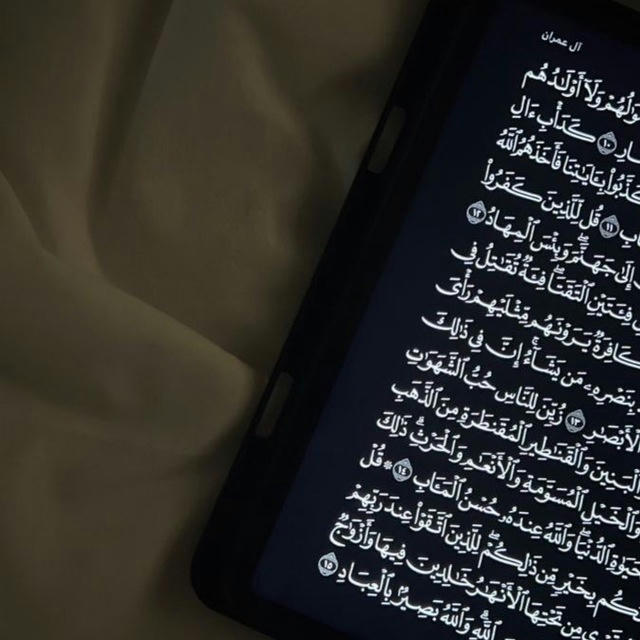 آل عمران
وَلَآ أَوْلَـٰدُهُم
كَدَأْبِ ءَالِ ١٠
بِـَٔايَـٰتِنَا فَأَخَذَهُمُ ٱللَّهُ
١١ قُل لِّلَّذِينَ كَفَرُوا۟
إِلَىٰ جَهَنَّمَ ۚ وَبِئْسَ ٱلْمِهَادُ ١٢
فِئَتَيْنِ ٱلْتَقَتَا ۖ فِئَةٌ تُقَـٰتِلُ فِى
كَافِرَةٌ يَرَوْنَهُم مِّثْلَيْهِمْ رَأْىَ
بِنَصْرِهِۦ مَن يَشَآءُ ۗ إِنَّ فِى ذَٰلِكَ
ٱلْأَبْصَـٰرِ ١٣ زُيِّنَ لِلنَّاسِ حُبُّ ٱلشَّهَوَٰتِ
وَٱلْقَنَـٰطِيرِ ٱلْمُقَنطَرَةِ مِنَ ٱلذَّهَبِ
ٱلْخَيْلِ ٱلْمُسَوَّمَةِ وَٱلْأَنْعَـٰمِ وَٱلْحَرْثِ ۗ ذَٰلِكَ
ٱلدُّنْيَا ۖ وَٱللَّهُ عِندَهُۥ حُسْنُ ٱلْمَـَٔابِ ١٤ ۞ قُلْ
بِخَيْرٍ مِّن ذَٰلِكُمْ ۚ لِلَّذِينَ ٱتَّقَوْا۟ عِندَ رَبِّهِمْ
مِن تَحْتِهَا ٱلْأَنْهَـٰرُ خَـٰلِدِينَ فِيهَا وَأَزْوَٰجٌ
ٱللَّهِ ۗ وَٱللَّهُ بَصِيرٌۢ بِٱلْعِبَادِ ١٥